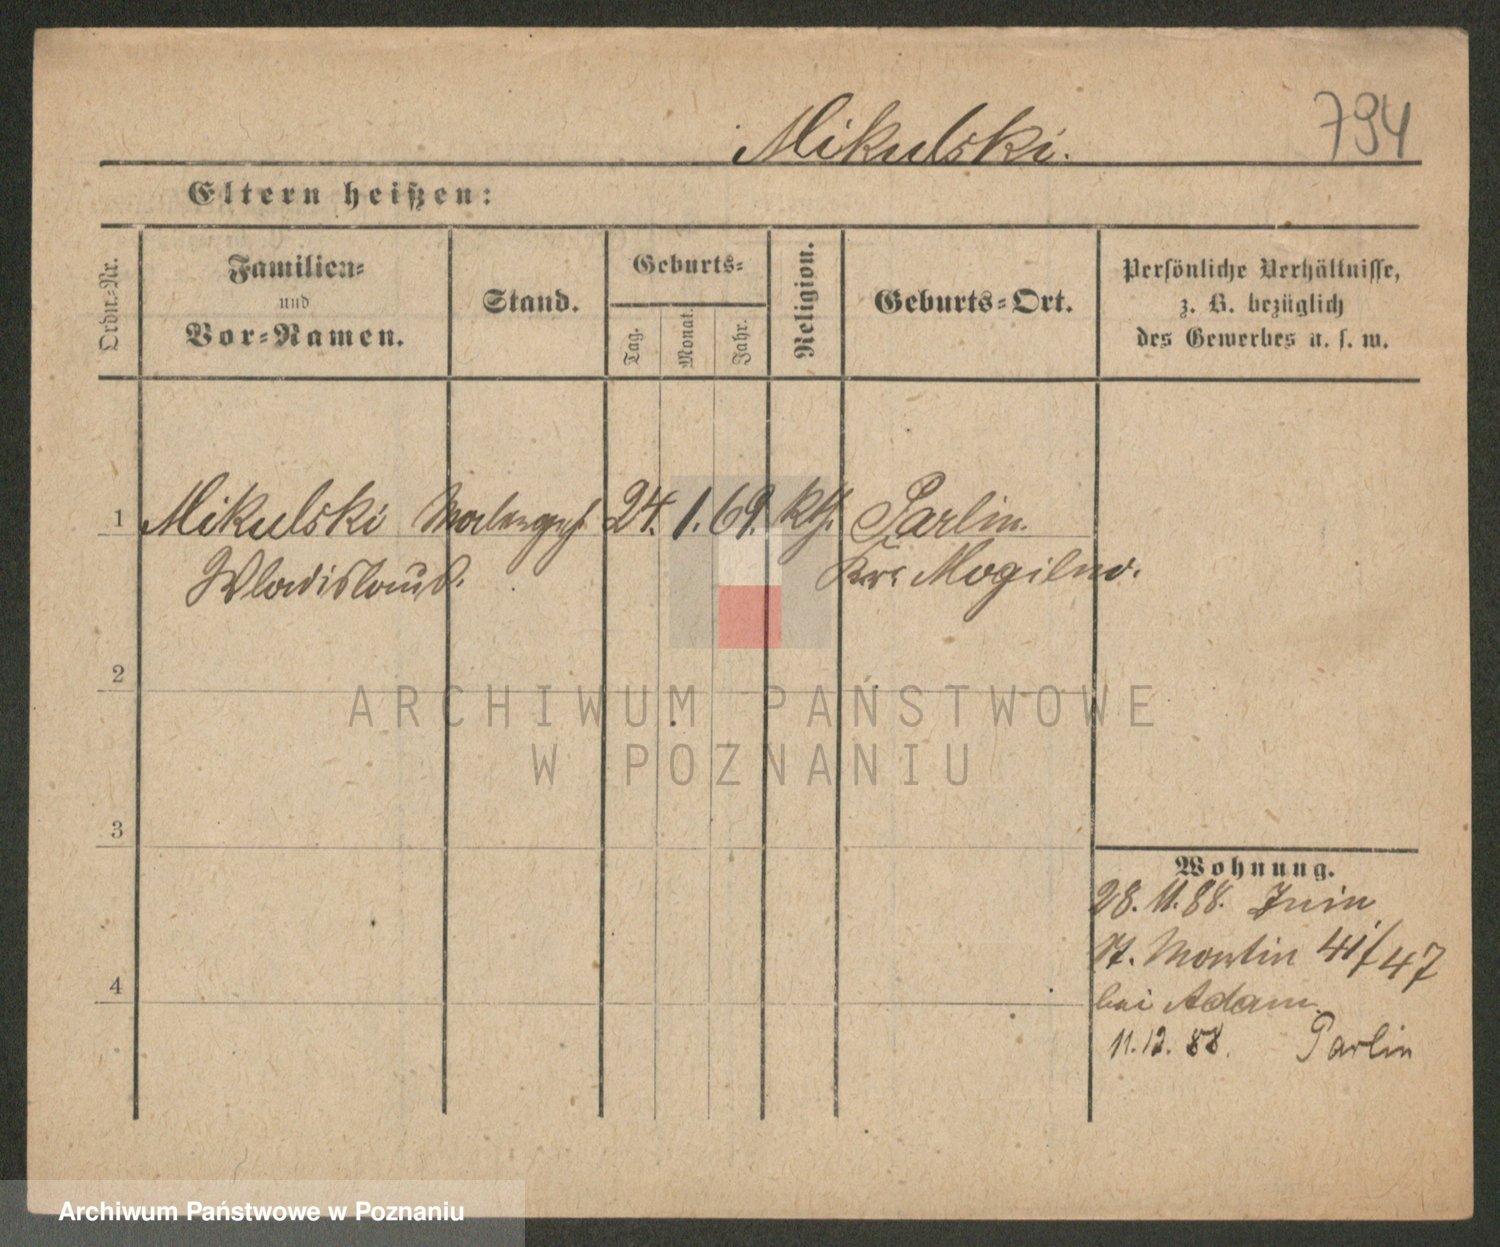 Mikulski.
794
Eltern heißen:
Ordn.-Nr.
Familien-
und
Vor-Namen.
Stand.
Geburts-
Tag.
Monat.
Jahr.
Religion.
Geburts-Ort.
Persönliche Verhältnisse,
z. B. bezüglich
des Gewerbes u. s. w.
1 Mikulski Malergeh. 24. 1. 69. kth. Parlin
Wladislaus. Krs. Mogilno.
2
ARCHIWUM PAŃSTWOWE
W POZNANIU
3
Wohnung.
28. 11. 88.
St. Martin 41/47
bei Adam
4
11. 12. 88. Parlin
Archiwum Państwowe w Poznaniu